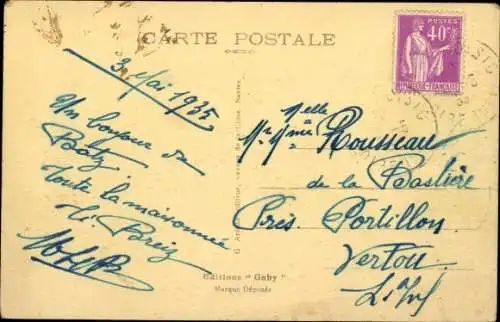 CARTE POSTALE
POSTES
40c
3 Mai 1935
Un bonjour de
Batz
toute la maisonnée
Ti Breiz
Melle
Mr Mme Rousseau
de la Bastière
Près Portillon
Vertou
L. Inf
Editions "Gaby"
Marque Déposée